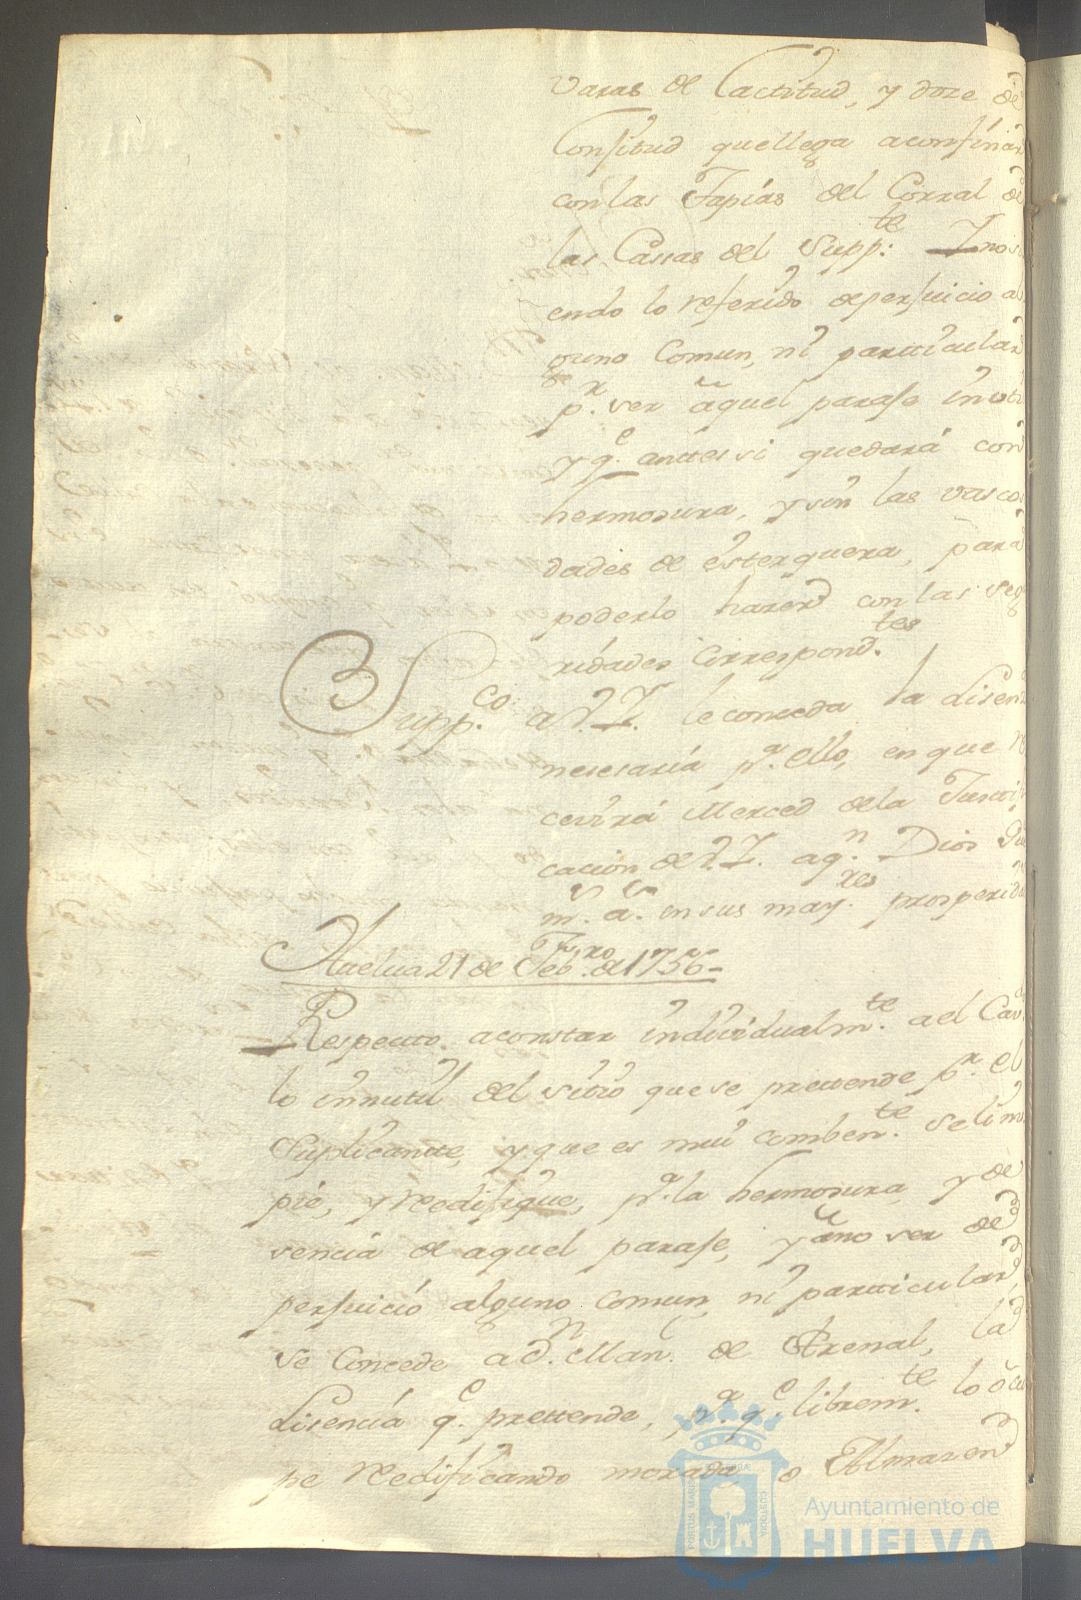 varas de Lactitud, y doze de
Lonjitud que llega a confinar
con las Tapias del Corral de
las Cassas del Supp.te Y no si
endo lo referido de perjuicio al
guno Comun, ni particular
p.r ser aquel paraje inuti
y q.e antes si quedará con
hermosura, y sin las vasco
dades de esterquera, para
poderlo hazer con las segu
ridades Correspond.tes
Supp.co a V.Y. le conceda la lisen
nesesaria p.a ello, en que re
cevirá Merced de la Justifi
cacion de V.Y. a q.n Dios Gu
m.s a.s en sus may.res prosperida
Huelva 21 de Feb.ro de 1756=
Respecto a constar individualm.te a el Cav.
lo innutil del sitio que se prettende p.r el
Suplicante, y que es mui comben.te se lim
pie, y reedifique, p.a la hermosura, y de
sencia de aquel paraje, y a no ser de
perjuicio alguno comun, ni particular,
se Concede a d.n Man.l de Arenal, la
lisencia q.e prettende, p.a q.e librem.te lo ocu
pe reedificando morada o Almazen
PORTUS MARIS
CUSTODIA
Ayuntamiento de
HUELVA